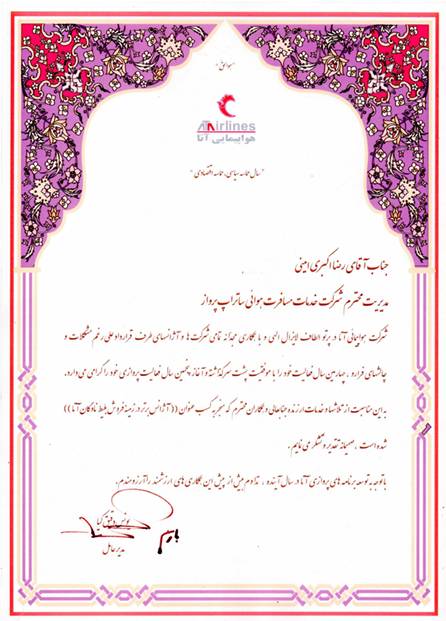 هوالحق
ATA Airlines
هواپیمایی آتا
"سال حماسه سیاسی، حماسه اقتصادی"
جناب آقای رضا اکبری امینی
مدیریت محترم شرکت خدمات مسافرت هوائی ساتراپ پرواز
شرکت هواپیمائی آتا در پرتو الطاف لایزال الهی و با همکاری مجدانه تمامی شرکت ها و آژانسهای طرف قرارداد علی رغم مشکلات و
چالشهای فراوان، چهارمین سال فعالیت خود را با موفقیت پشت سر گذاشته و آغاز پنجمین سال فعالیت پروازی خود را گرامی می دارد،
به این مناسبت از تلاشها و خدمات ارزنده جنابعالی و همکاران محترم که منجر به کسب عنوان ((آژانس برتر در زمینه فروش بلیط ناوگان آتا))
شده است، صمیمانه تقدیر و تشکر می نمایم.
با توجه به توسعه برنامه های پروازی آتا در سال آینده، تداوم بیش از پیش این همکاری های ارزشمند را آرزومندم.
یونس دقیق کیا
مدیرعامل